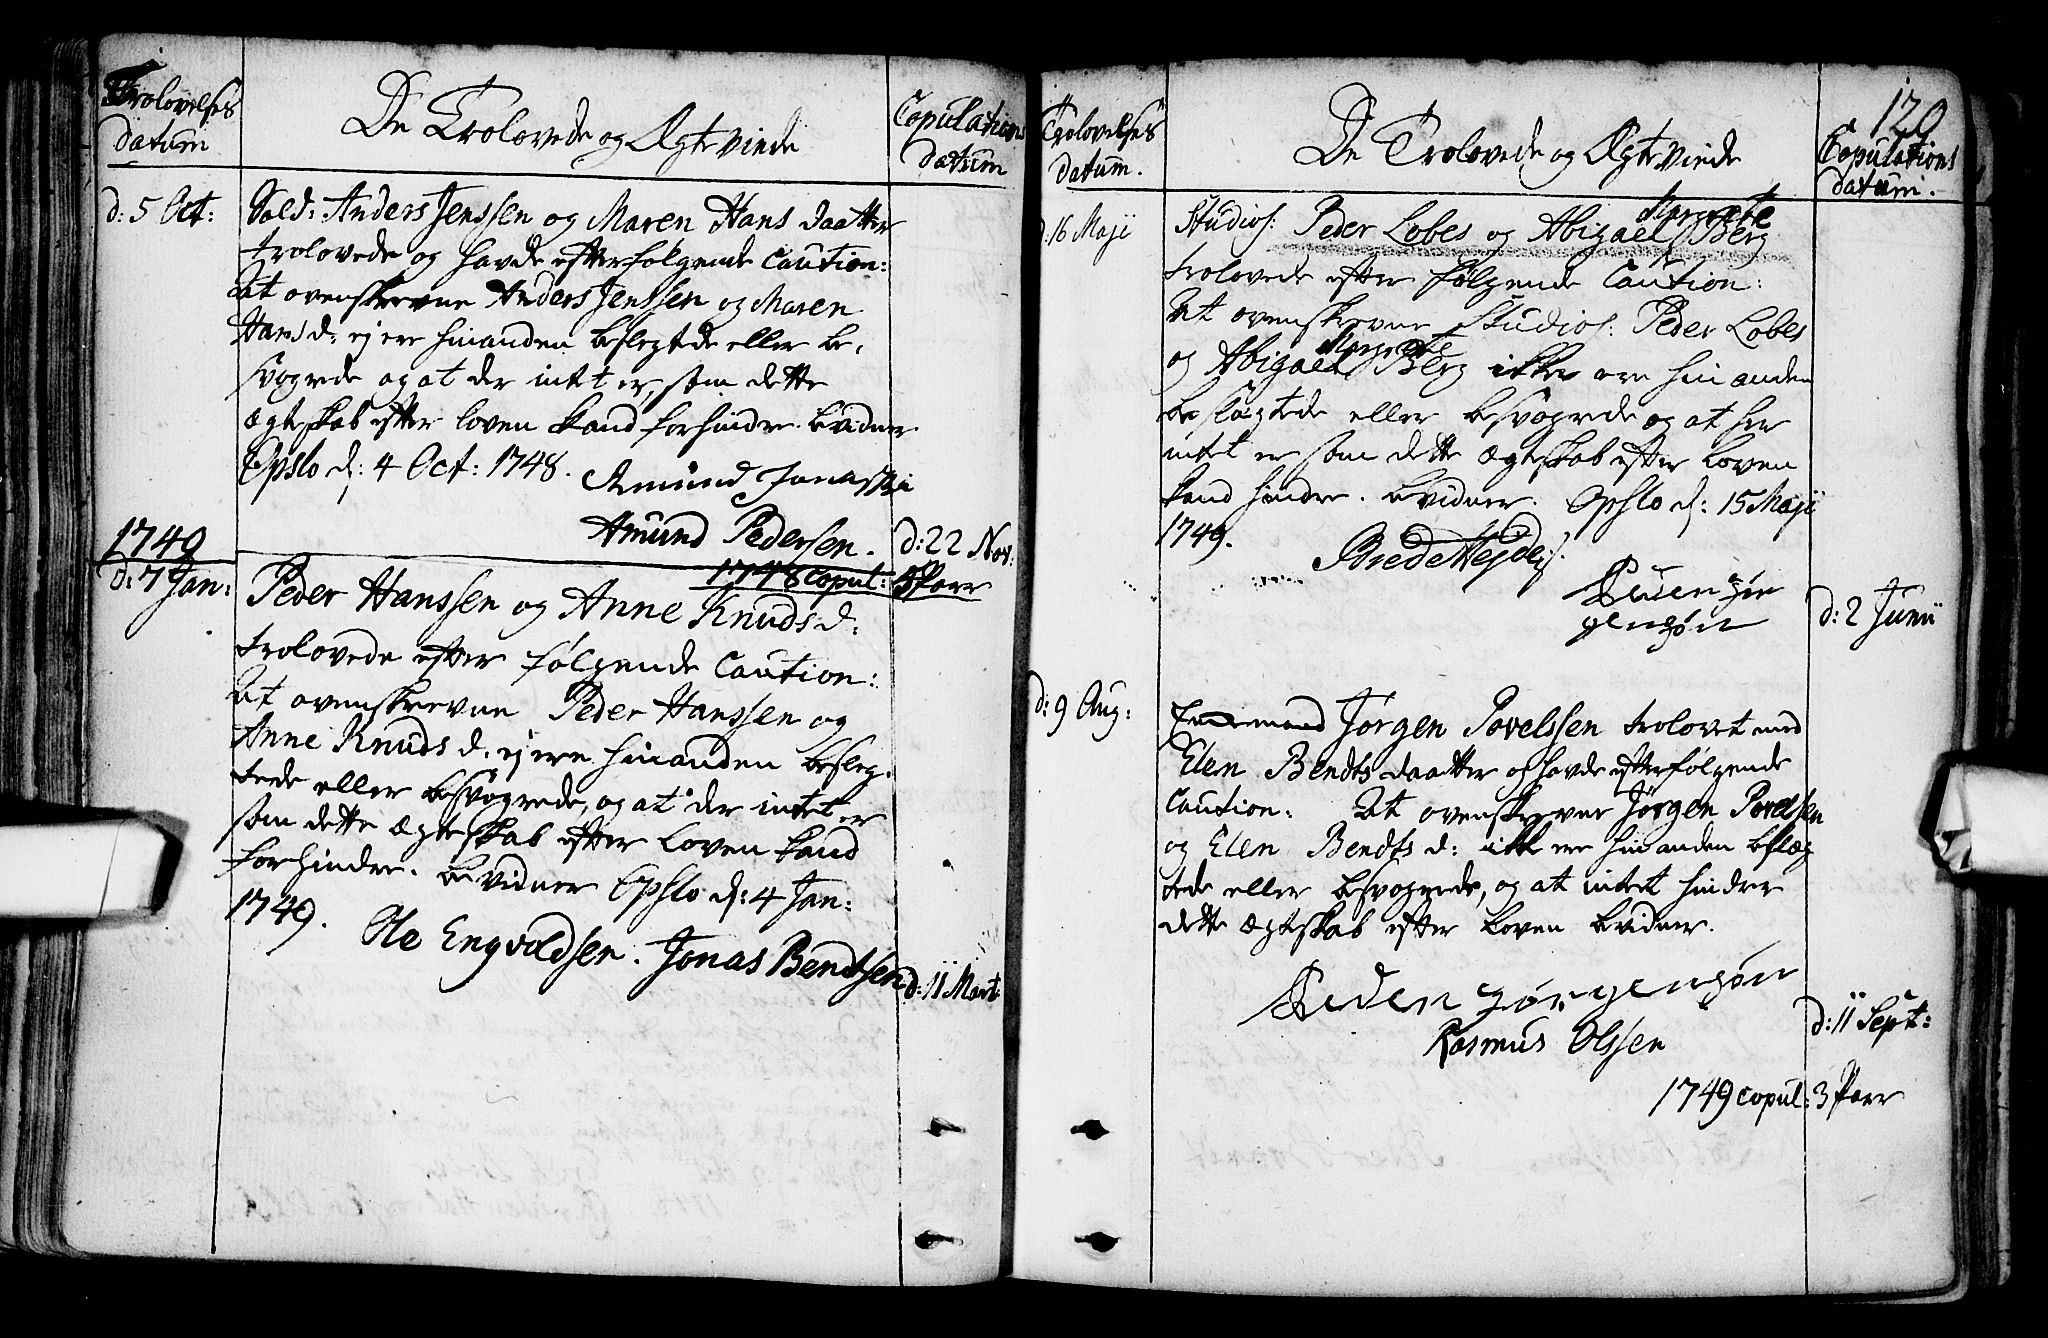 Trolovelses
datum
De Trolovede og Ægteviede
Copulations
datum
d: 5 Oct:
Sold: Anders Jenssen og Maren Hans daatter
trolovede og havde efterfølgende Caution:
At ovenskrevne Anders Jenssen og Maren
Hans d: ej ere hinanden beslegtede eller be,
svogrede og at der intet er, som dette
Ægteskab efter loven kand forhindre bevidner
Opslo d: 4 Oct: 1748.
Amund
Amund Pedersen.
d: 22 Nov:
1748 copul: Parr
1749
d: 7 Jan:
Peder Hanssen og Anne Knuds d:
trolovede efter følgende Caution:
At ovenskrevne Peder Hanssen og
Anne Knuds d: ej ere hinanden besleg,
tede eller besvogrede, og at der intet er
som dette Ægteskab efter Loven kand
forhindre. bevidner Opslo d: 4 Jan:
1749.
Ole Engvoldsen. Jonas Bendtsen
d: 11 Mart:
120
Trolovelses
datum.
De Trolovede og Ægteviede
Copulations
datum.
d: 16 Maji
Margrete
Studios: Peder Lobes og Abigael Berg
trolovede efter følgende Caution:
At ovenskrevne Studios: Peder Lobes
Margrete
og Abigael Berg ikke ere hinanden
beslegtede eller besvogrede og at her
intet er som dette Ægteskab efter Loven
kand hindre. bevidner. Opslo d: 15 Maji
1749.
Jør
gensøn
d: 2 Junii
d: 9 Aug:
Jørgen Povelssen trolovet med
Elen Bendts daatter og havde efterfølgende
Caution: At ovenskrevne Jørgen Povelssen
og Elen Bendts d: ikke ere hinanden beslæg
tede eller besvogrede, og at intet hindrer
dette Ægteskab efter Loven bevidner.
Peder Jørgensøn
Rasmus Olssen
d: 11 Sept:
1749 copul: 3 Parr